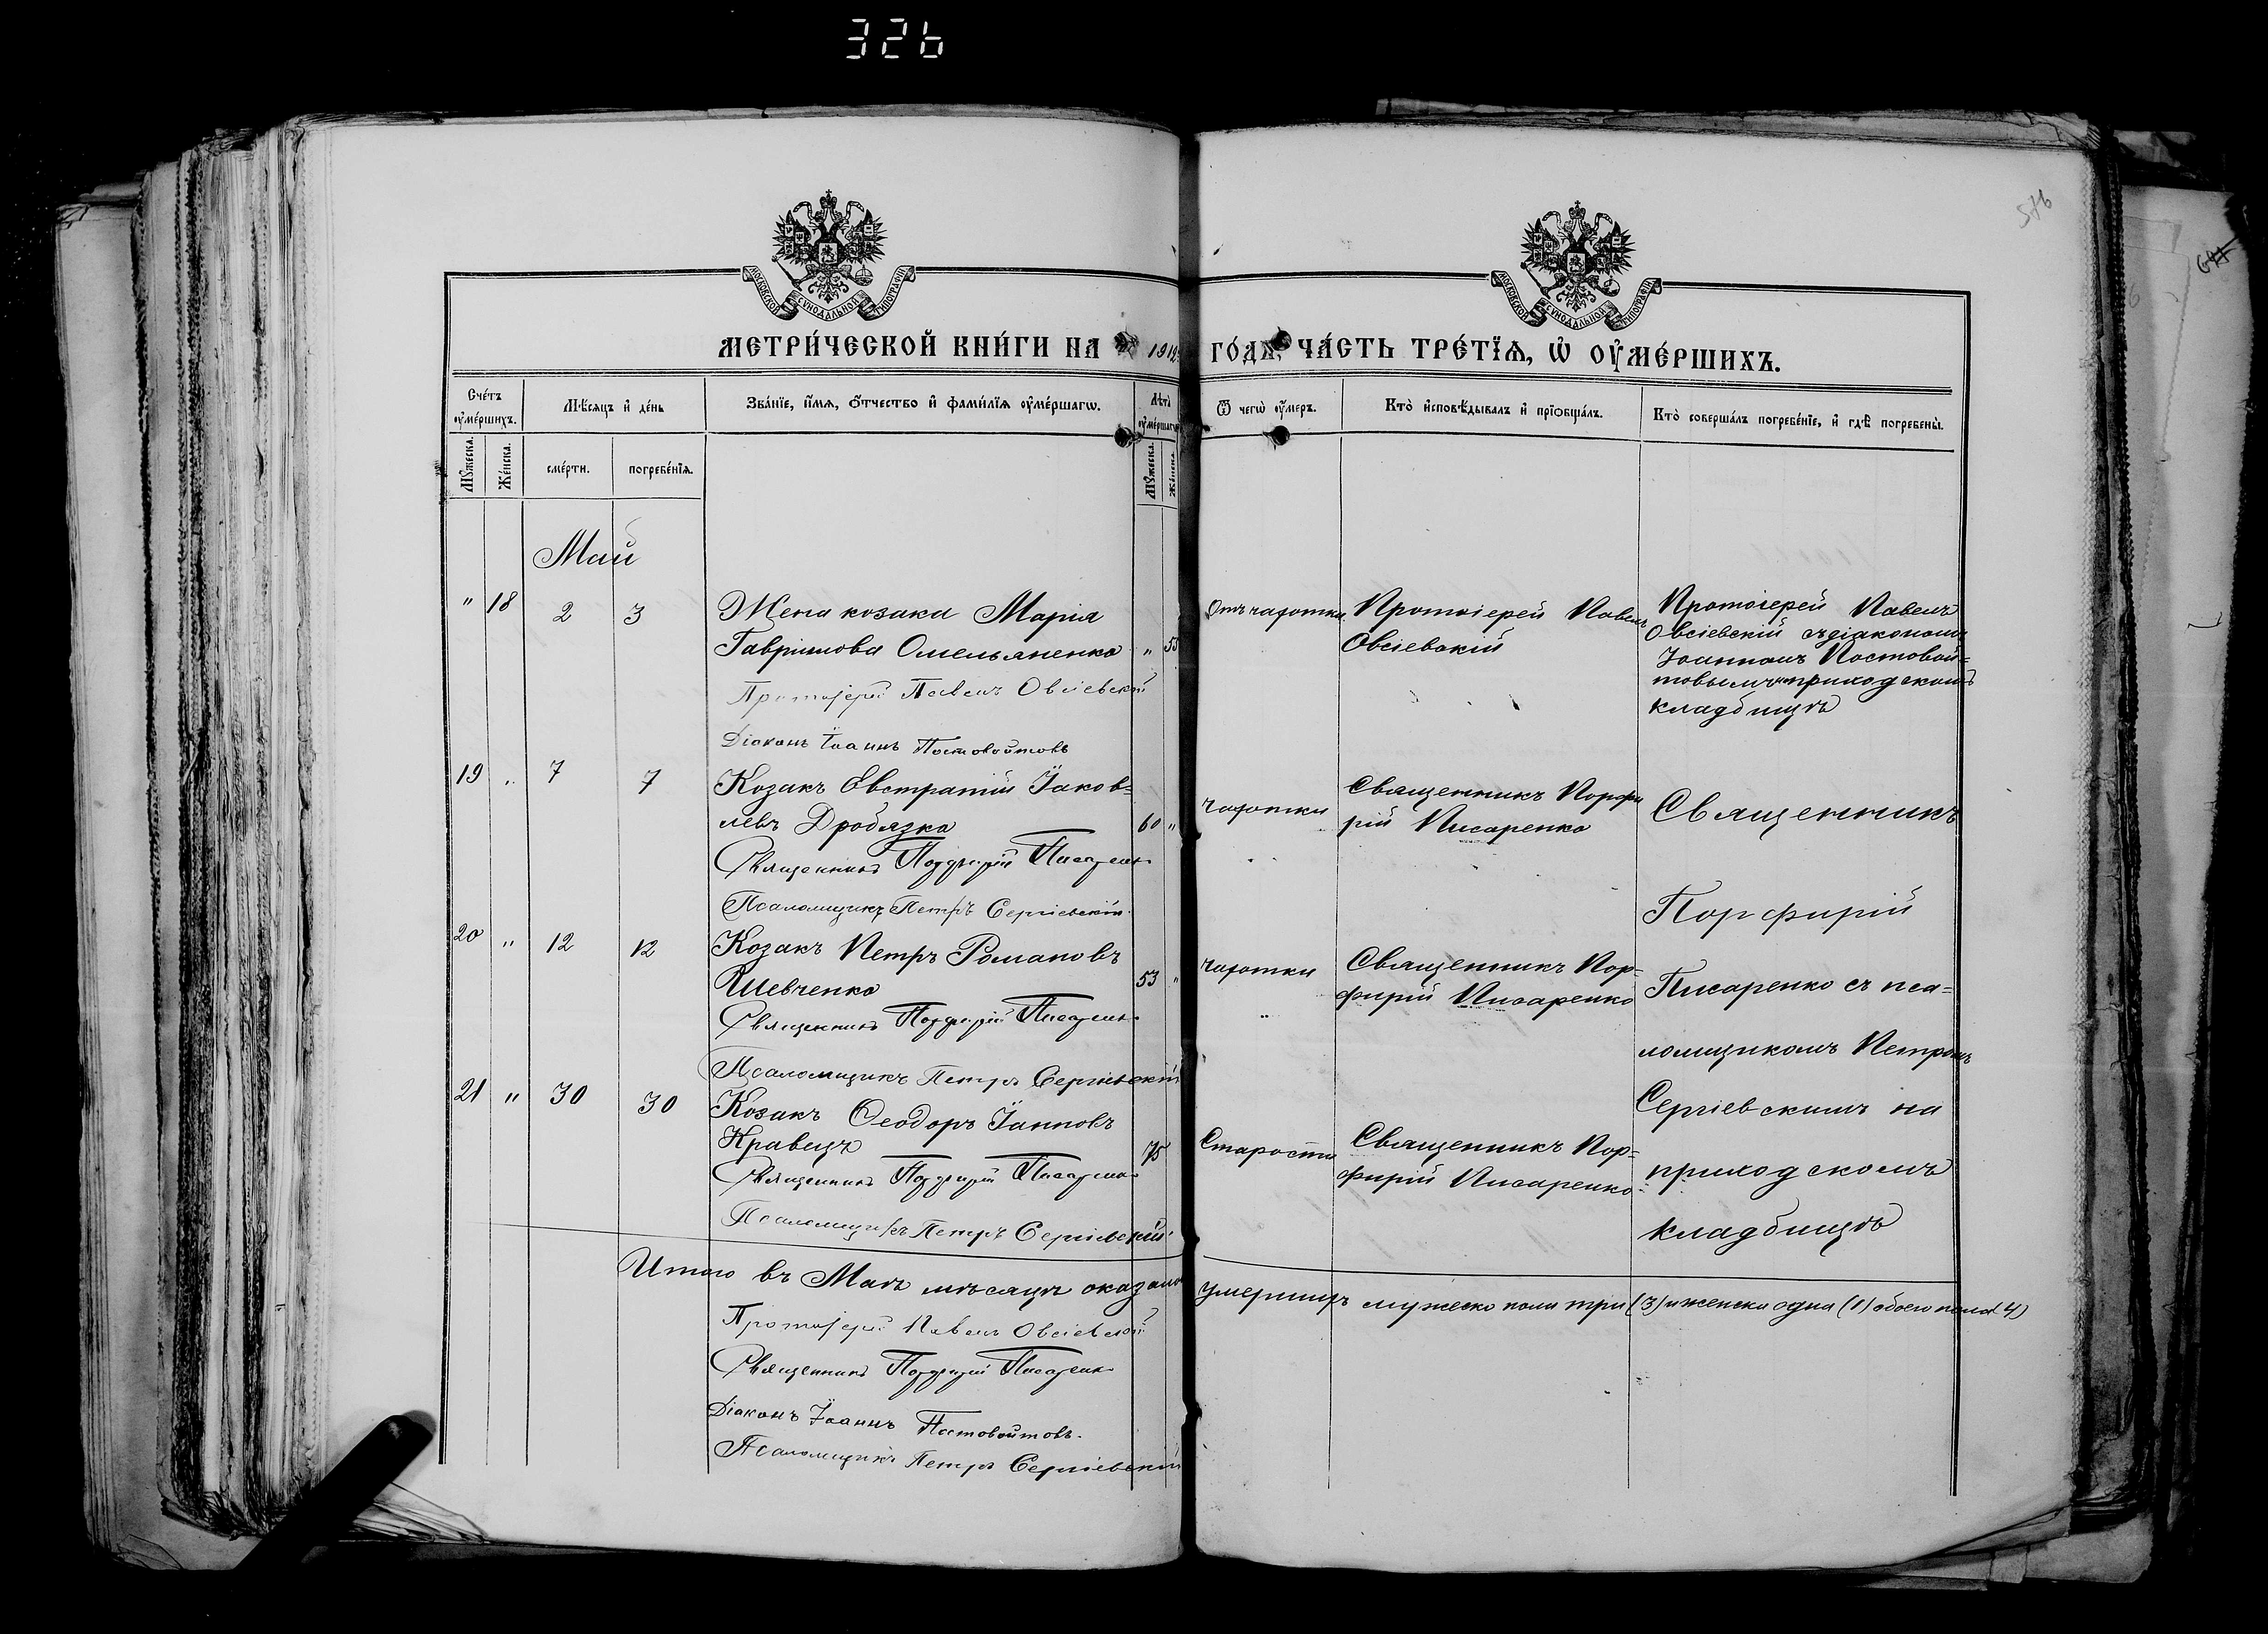 326
586
МОСКОВСКОЙ СУНОДАЛЬНОЙ ТИПОГРАФІИ
МОСКОВСКОЙ СУНОДАЛЬНОЙ ТИПОГРАФІИ
МЕТРИ́ЧЕСКОЙ КНИ́ГИ НА 1912 ГО́ДЪ, ЧА́СТЬ ТРЕ́ТЇѦ, Ѡ҆ ОУ҆МЕ́РШИХЪ.
Сче́тъ оу҆ме́ршихъ.
Мѣ́сяцъ и҆ де́нь
Зва́нїе, и҆́мѧ, ѻ҆́тчество и҆ фами́лїѧ оу҆ме́ршагѡ.
Лѣ́та оу҆ме́ршагѡ
Ѿ чегѡ̀ оу҆́меръ.
Кто̀ и҆сповѣ́дывалъ и҆ прїѡбща́лъ.
Кто̀ соверша́лъ погребе́нїе, и҆ гдѣ̀ погребены̀.
Мꙋ́жеска. Же́нска. сме́рти. погребе́нїѧ. Мꙋ́жеска. Же́нска.
Май
" 18 2 3 Жена козака Марія
Гавриилова Омельяненко " 55
Протоіерей Павелъ Овсіевскій
Діаконъ Іоаннъ Постовойтовъ
Отъ чахотки
Протоіерей Павелъ
Овсіевскій
Протоіерей Павелъ
Овсіевскій съ діакономъ
Іоанномъ Постовой=
товымъ на приходскомъ
кладбищѣ
19 " 7 7 Козакъ Евстратій Іаков=
левъ Дробязко 60 "
Священникъ Порфирій Писаренко
Псаломщикъ Петръ Сергіевскій
чахотки
Священникъ Порфи
рій Писаренко
Священникъ
Порфирій
Писаренко съ пса=
ломщикомъ Петромъ
Сергіевскимъ на
приходскомъ
кладбищѣ
20 " 12 12 Козакъ Петръ Романовъ
Шевченко 53 "
Священникъ Порфирій Писаренко
Псаломщикъ Петръ Сергіевскій
чахотки
Священникъ Пор=
фирій Писаренко
21 " 30 30 Козакъ Ѳеодоръ Іанновъ
Кравецъ 75
Священникъ Порфирій Писаренко
Псаломщикъ Петръ Сергіевскій
Старости
Священникъ Пор=
фирій Писаренко
Итого въ Маѣ мѣсяцѣ оказалось умершихъ мужеска пола три (3) и женска одна (1) обоего пола 4)
Протоіерей Павелъ Овсіевскій
Священникъ Порфирій Писаренко
Діаконъ Іоаннъ Постовойтовъ.
Псаломщикъ Петръ Сергіевскій